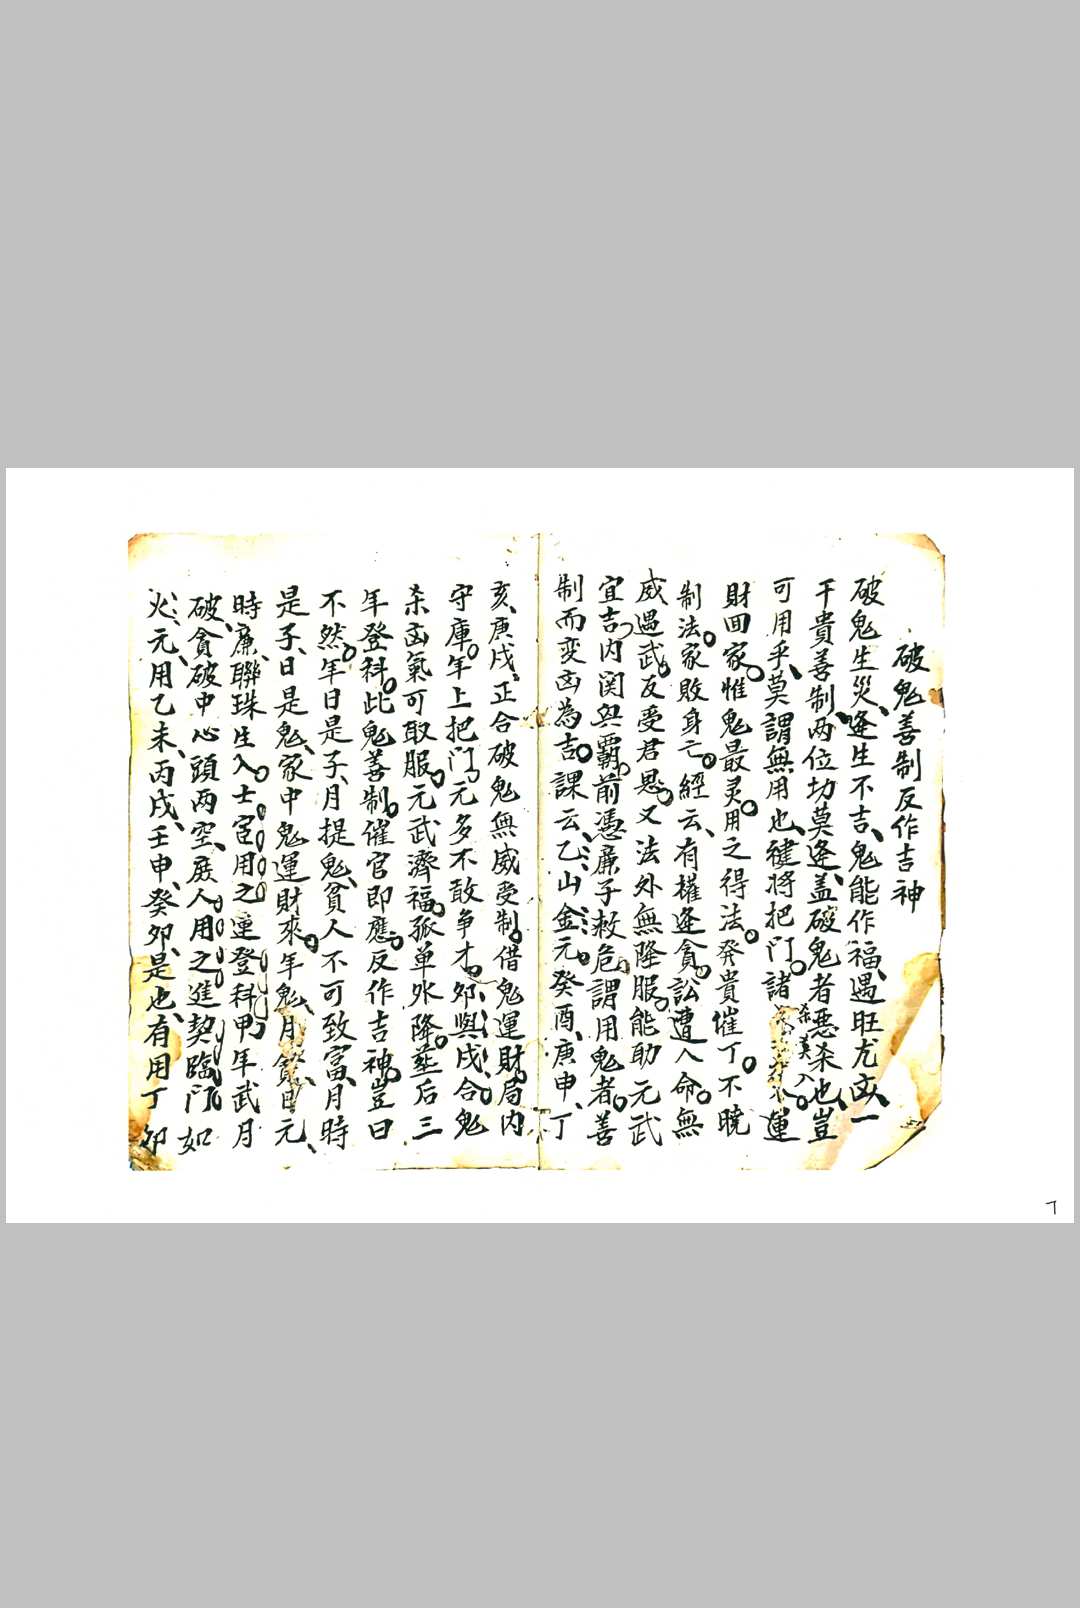 破鬼善制反作吉神
破鬼生災、逢生不吉、鬼能作福、遇旺尤凶、一
干貴善制、两位切莫逢、盖破鬼者惡杀也、豈
可用乎、莫謂無用也、鍵將把门。諸杀美入。運
財回家。惟鬼最灵。用之得法。発貴催丁。不曉
制法。家敗身亡。經云、有權逢貪。訟遭人命。無
威遇武。反受君恩。又法外無降服。能助元武
宜吉。内関與霸。前憑廉子救危。謂用鬼者。善
制而变凶為吉。課云、乙山金元。癸酉、庚申、丁
亥、庚戌、正合破鬼無威受制。借鬼運財。局内
守庫。年上把门。元多不敢争才。夘與戌合鬼
杀凶氣可取服。元武濟福。孤单外降。䒷后三
年登科。此鬼善制。催官即應。反作吉神。豈曰
不然。年日是子、月提鬼、貧人不可致富、月時
是子、日是鬼、家中鬼運財來。年鬼、月貪日元、
時廉、聯珠生入。士宦用之連登科甲、年武月
破、貪破中心頭两空、庭人用之進契臨门、如
火、元、用乙未、丙戌、壬申、癸夘、是也、有用丁夘
7